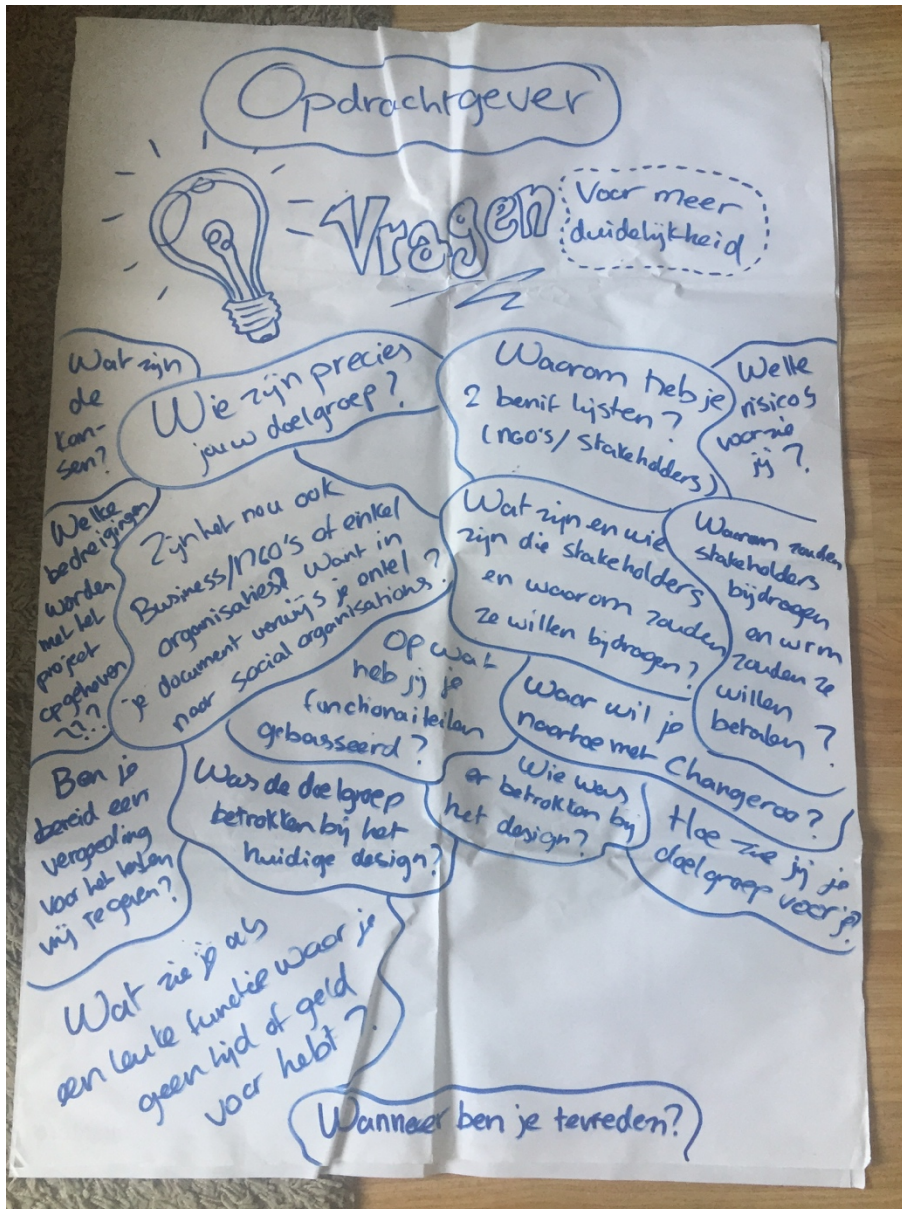 Opdrachtgever
Vragen
Voor meer
duidelijkheid
Wat zijn
de
kan-
sen?
Wie zijn precies
jouw doelgroep?
Waarom heb je
2 benif lijsten?
(NGO's/Stakeholders)
Welke
risico's
voorzie
jij?
Welke
bedreigingen
worden
met het
project
opgeheven
???
Zijn het nou ook
Business/NGO's of enkel
organisaties? Want in
je document verwijs je enkel
naar social organisations?
Wat zijn en wie
zijn die stakeholders
en waarom zouden
ze willen bijdragen?
Waarom zouden
stakeholders
bijdragen
en wrm
zouden ze
willen
betalen?
Op wat
heb jij je
functionaliteiten
gebasseerd?
Waar wil je
naartoe met Changeroo?
Ben je
bereid een
vergoeding
voor het testen
vrij te geven?
Was de doelgroep
betrokken bij het
huidige design?
Wie was
er betrokken bij
het design?
Hoe zie jij je
doelgroep voor je?
Wat zie je als
een leuke functie waar je
geen tijd of geld
voor hebt?
Wanneer ben je tevreden?